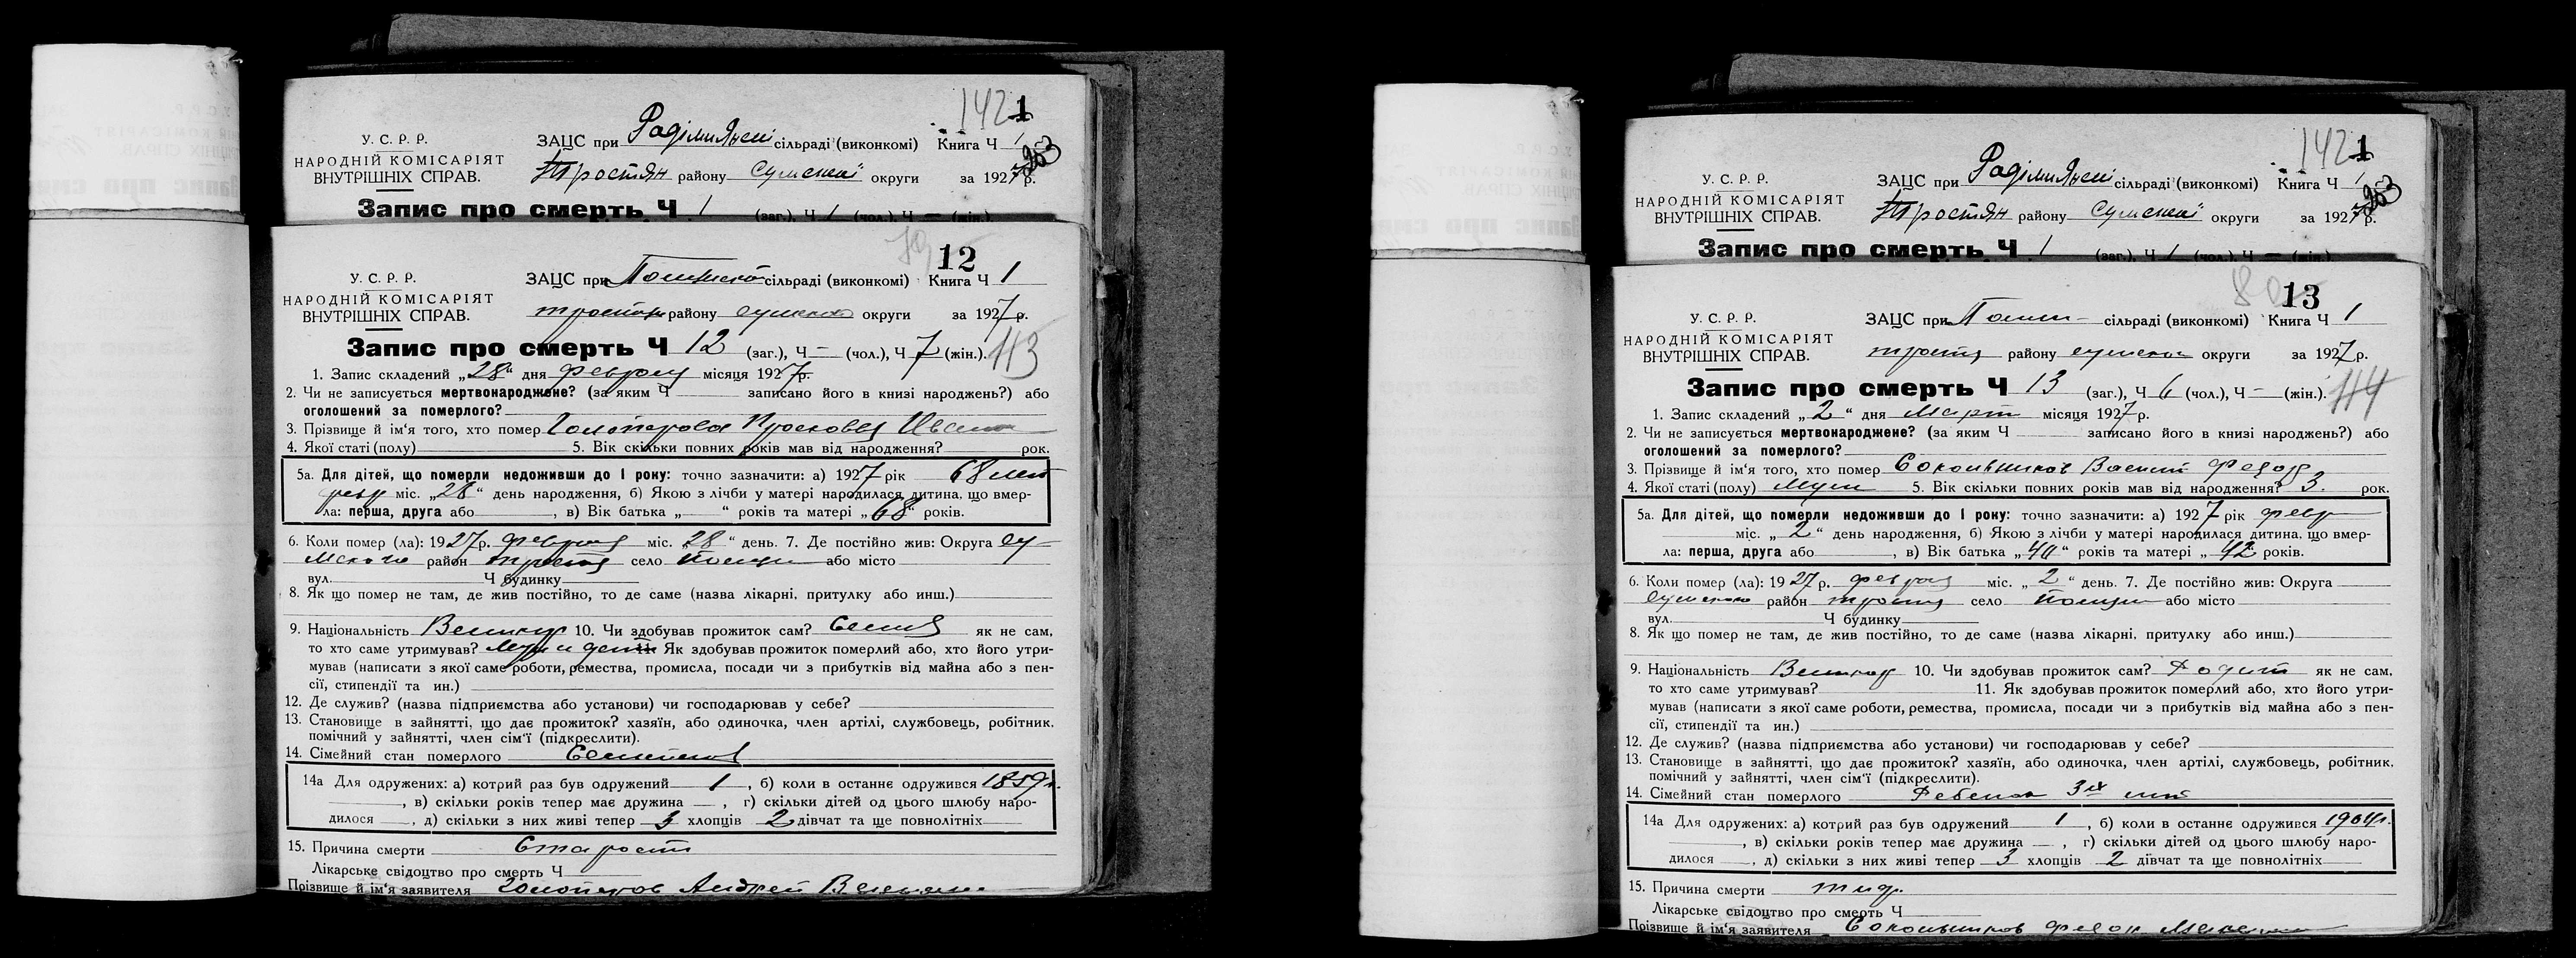 142 1
У. С. Р. Р.
НАРОДНІЙ КОМІСАРІЯТ
ВНУТРІШНІХ СПРАВ.
ЗАЦС при сільраді (виконкомі) Книга Ч 1
Тростян району Сумской округи за 1927 р.
Запис про смерть Ч 1 (заг.), Ч 1 (чол.), Ч — (жін.).
12
У. С. Р. Р.
НАРОДНІЙ КОМІСАРІЯТ
ВНУТРІШНІХ СПРАВ.
ЗАЦС при сільраді (виконкомі) Книга Ч 1
району округи за 1927 р.
Запис про смерть Ч 12 (заг.), Ч — (чол.), Ч 7 (жін.).
113
1. Запис складений „28“ дня месяця 1927р.
2. Чи не записується мертвонароджене? (за яким Ч записано його в книзі народжень?) або
оголошений за померлого?
3. Прізвище й ім‘я того, хто помер
4. Якої статі (полу) 5. Вік скільки повних років мав від народження? рок.
5а. Для дітей, що померли недоживши до 1 року: точно зазначити: а) 1927 рік 68 лет
февр міс. „28“ день народження, б) Якою з лічби у матері народилася дитина, що вмер-
ла: перша, друга або , в) Вік батька „—“ років та матері „68“ років.
6. Коли помер (ла): 1927р. міс. „28“ день. 7. Де постійно жив: Округа Су-
район село або місто
вул. Ч будинку
8. Як що помер не там, де жив постійно, то де саме (назва лікарні, притулку або инш.)
9. Національність Великор 10. Чи здобував прожиток сам? як не сам,
то хто саме утримував? Муж и дети Як здобував прожиток померлий або, хто його утри-
мував (написати з якої саме роботи, ремества, промисла, посади чи з прибутків від майна або з пен-
сії, стипендії та ин.)
12. Де служив? (назва підприємства або установи) чи господарював у себе?
13. Становище в зайнятті, що дає прожиток? хазяїн, або одиночка, член артілі, службовець, робітник,
помічний у зайнятті, член сім‘ї (підкреслити).
14. Сімейний стан померлого
14а Для одружених: а) котрий раз був одружений 1 , б) коли в останнє одружився 1859 г.
, в) скільки років тепер має дружина — , г) скільки дітей од цього шлюбу наро-
дилося — , д) скільки з них живі тепер 3 хлопців 2 дівчат та ще повнолітніх
15. Причина смерти Старость
Лікарське свідоцтво про смерть Ч
Прізвище й ім‘я заявителя Андрей
142 1
У. С. Р. Р.
НАРОДНІЙ КОМІСАРІЯТ
ВНУТРІШНІХ СПРАВ.
ЗАЦС при сільраді (виконкомі) Книга Ч 1
Тростян району Сумской округи за 1927 р.
Запис про смерть Ч 1 (заг.), Ч 1 (чол.), Ч — (жін.).
80 13
У. С. Р. Р.
НАРОДНІЙ КОМІСАРІЯТ
ВНУТРІШНІХ СПРАВ.
ЗАЦС при сільраді (виконкомі) Книга Ч 1
району округи за 1927р.
Запис про смерть Ч 13 (заг.), Ч 6 (чол.), Ч — (жін.).
114
1. Запис складений „2“ дня Март місяця 1927р.
2. Чи не записується мертвонароджене? (за яким Ч записано його в книзі народжень?) або
оголошений за померлого?
3. Прізвище й ім‘я того, хто помер Сокольников Васили Федор
4. Якої статі (полу) Муж 5. Вік скільки повних років мав від народження? 3. рок.
5а. Для дітей, що померли недоживши до 1 року: точно зазначити: а) 1927 рік февр
міс. „2“ день народження, б) Якою з лічби у матері народилася дитина, що вмер-
ла: перша, друга або , в) Вік батька „40“ років та матері „42“ років.
6. Коли помер (ла): 1927р. міс. „2“ день. 7. Де постійно жив: Округа
район село або місто
вул. Ч будинку
8. Як що помер не там, де жив постійно, то де саме (назва лікарні, притулку або инш.)
9. Національність Великор 10. Чи здобував прожиток сам? Родит як не сам,
то хто саме утримував? 11. Як здобував прожиток померлий або, хто його утри-
мував (написати з якої саме роботи, ремества, промисла, посади чи з прибутків від майна або з пен-
сії, стипендії та ин.)
12. Де служив? (назва підприємства або установи) чи господарював у себе?
13. Становище в зайнятті, що дає прожиток? хазяїн, або одиночка, член артілі, службовець, робітник,
помічний у зайнятті, член сім‘ї (підкреслити).
14. Сімейний стан померлого Ребенок 3х лет
14а Для одружених: а) котрий раз був одружений 1 , б) коли в останнє одружився 1904г.
, в) скільки років тепер має дружина — , г) скільки дітей од цього шлюбу наро-
дилося — , д) скільки з них живі тепер 3 хлопців 2 дівчат та ще повнолітніх
15. Причина смерти тиф.
Лікарське свідоцтво про смерть Ч
Прізвище й ім‘я заявителя Сокольников Федор